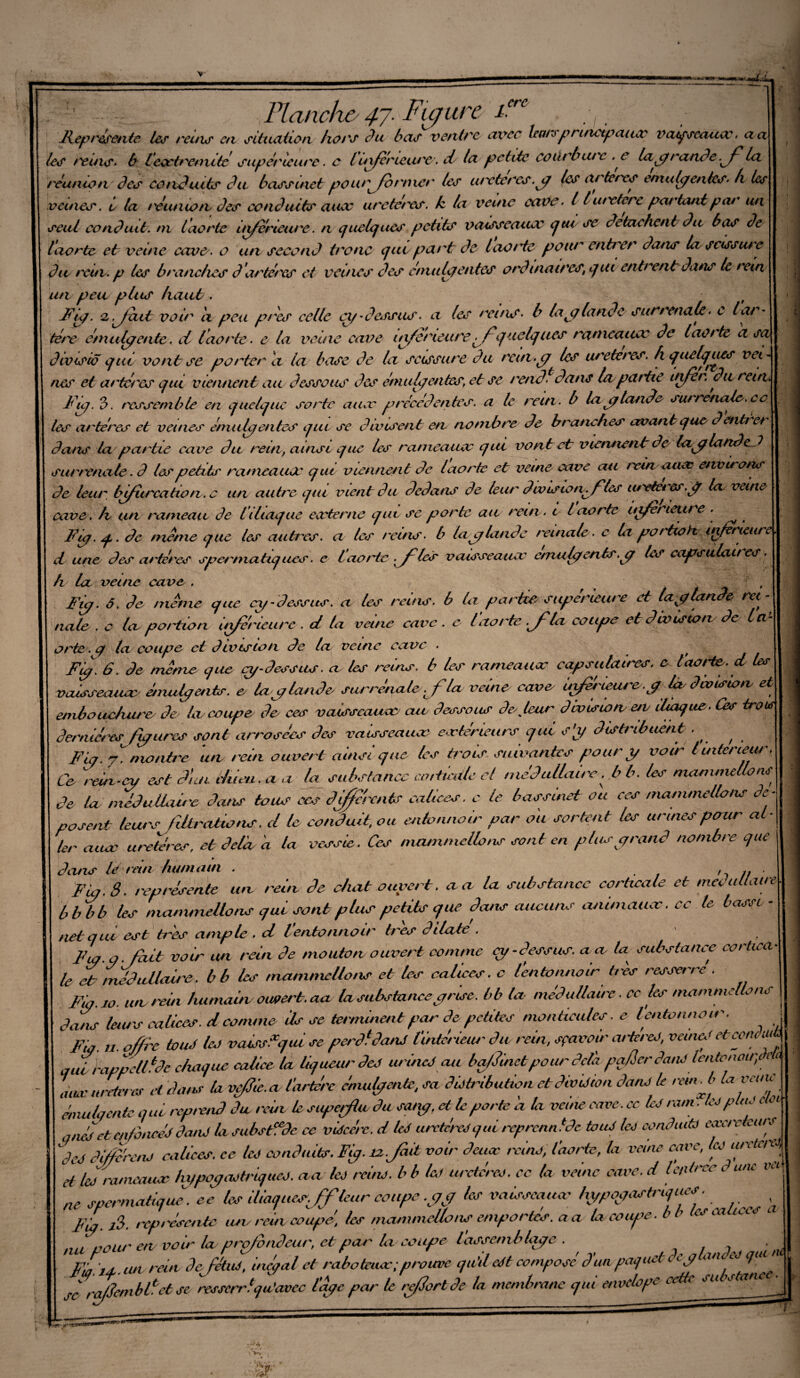 Planche 47. Figure 1.ere
Représente les reins en situation hors du bas ventre avec leurs principaux vaisseaux. a a
les reins. b l'extremité supérieure. c l'inférieure. d la petite courbure. e la grande. f la
réunion des conduits du bassinet pour former les uretéres. g les artéres émulgentes. h les
veines. i la réunion des conduits aux uretéres. k la veine cave. l l'uretére partant par un
seul conduit. m l'aorte inférieure. n quelques petits vaisseaux qui se détachent du bas de
l'aorte et veine cave. o un second tronc qui part de l'aorte pour entrer dans la scissure
du rein. p les branches d'artéres et veines des émulgentes ordinaires, qui entrent dans le rein
un peu plus haut.
Fig. 2. fait voir à peu près celle cy-dessus. a les reins. b la glande surrénale. c l'ar-
tére émulgente. d l'aorte. e la veine cave inférieure. f quelques rameaux de l'aorte à sa
divisiõ qui vont se porter à la base de la scissure du rein. g les uretéres. h quelques vei-
nes et artéres qui viennent au dessous des émulgentes, et se rend.t dans la partie infér.re du rein.
Fig. 3. ressemble en quelque sorte aux précédentes. a le rein. b la glande surrénale. cc
les artéres et veines émulgentes qui se divisent en nombre de branches avant que d'entrer
dans la partie cave du rein, ainsi que les rameaux qui vont et viennent de la glande
surrénale. d les petits rameaux qui viennent de l'aorte et veine cave au rein aux environs
de leur bifurcation. e un autre qui vient du dedans de leur division. f les uretéres. g la veine
cave. h un rameau de l'iliaque externe qui se porte au rein. i l'aorte inférieure.
Fig. 4. de même que les autres. a les reins. b la glande reinale. c la portion inférieure
d'une des artéres spermatiques. e l'aorte. f les vaisseaux émulgents. g les capsulaires.
h la veine cave.
Fig. 5. de même que cy-dessus. a les reins. b la partie supérieure et la glande réi-
nale. c la portion inférieure. d la veine cave. e l'aorte. f la coupe et division de l'a-
orte. g la coupe et division de la veine cave.
Fig. 6. de même que cy-dessus. a les reins. b les rameaux capsulaires. c l'aorte. d les
vaisseaux émulgents. e la glande surrénale. f la veine cave inférieure. g la division et
embouchure de la coupe de ces vaisseaux au dessous de leur division en iliaque. Ces trois
derniéres figures sont arrosées des vaisseaux extérieurs qui s'y distribuent.
Fig. 7. montre un rein ouvert ainsi que les trois suivantes pour y voir l'intérieur.
Ce rein-cy est d'un chien. a a la substance corticale et médullaire. b b. les mammellons
de la médullaire dans tous ces différents calices. c le bassinet où ces mammellons dé-
posent leurs filtrations. d le conduit, ou entonnoir par où sortent les urines pour al-
ler aux uretéres, et delà à la vessie. Ces mammellons sont en plus grand nombre que
dans le rein humain.
Fig. 8. représente un rein de chat ouvert. a a la substance corticale et médullaire
b b b b les mammellons qui sont plus petits que dans aucuns animaux. cc le bassi-
net qui est très ample. d l'entonnoir très dilaté.
Fig. 9. fait voir un rein de mouton ouvert comme cy-dessus. a a la substance cortica-
le et médullaire. b b les mammellons et les calices. c l'entonnoir très resserré.
Fig. 10. un rein humain ouvert. aa la substance grise. bb la médullaire. cc les mammellons
dans leurs calices. d comme ils se terminent par de petites monticules. e l'entonnoir.
Fig. 11. offre tous les vaiss.x qui se perd.t dans l'intérieur du rein, sçavoir artéres, veines et conduits
qui rappell.t de chaque calice la liqueur des urines au bassinet pour delà passer dans l'entonoir, delà
aux uretéres et dans la vessie. a l'artére émulgente, sa distribution et division dans le rein. b la veine
émulgente qui reprend du rein le superflu du sang, et le porte à la veine cave. cc les ram.x les plus éloi-
gnés et enfoncés dans la subst.ce de ce viscére. d les uretéres qui reprenn.t de tous les conduits excréteurs
des différens calices. ee les conduits. Fig. 12. fait voir deux reins, l'aorte, la veine cave, les uretéres,
et les rameaux hypogastriques. a a les reins. b b les uretéres. cc la veine cave. d l'entrée d'une vei-
ne spermatique. ee les iliaques. ff leur coupe. gg les vaisseaux hypogastriques.
Fig. 13. représente un rein coupé, les mammellons emportés. a a la coupe. b b les calices à
nu pour en voir la profondeur, et par la coupe l'assemblage.
Fig. 14. un rein de fétus, inégal et raboteux; prouve qu'il est composé d'un paquet de glandes qui ne
se rassembl.t et se resserr.t qu'avec l'âge par le ressort de la membrane qui envelope cette substance.